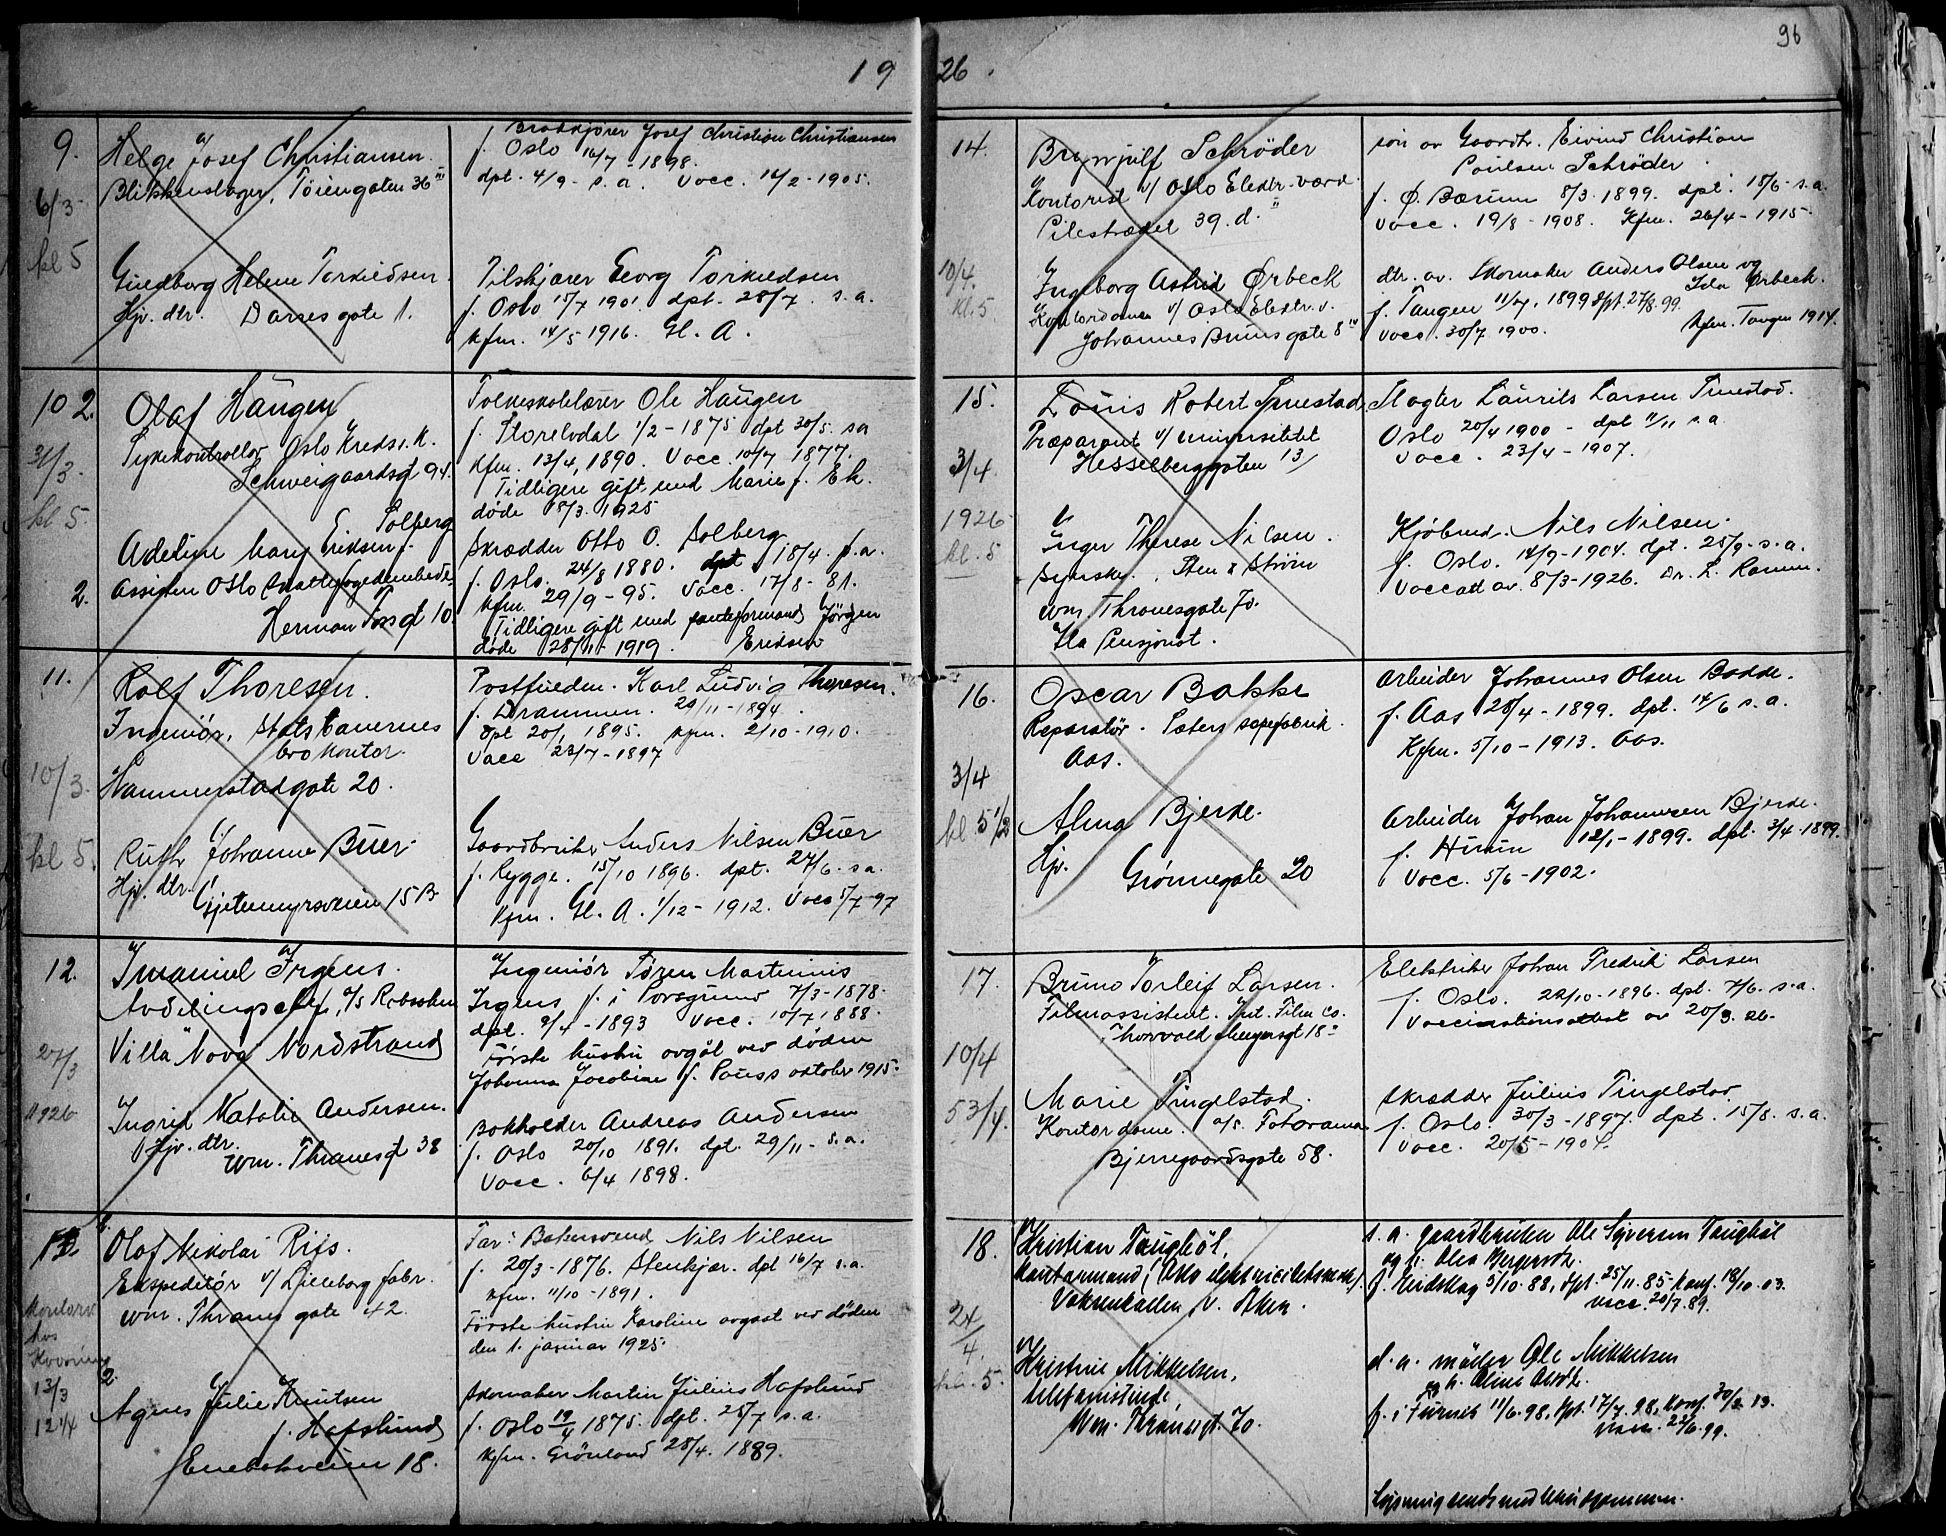 19 26.
96
9.
6/3
kl 5
Helge Josef Christiansen.
Blikkenslager, Töiengaten 36 III
Josef Christian Christiansen
f. Oslo 16/7 - 1898.
dpt. 4/9 - s.a. Vacc. 14/2 - 1905.
Helene Torkildsen.
Hj. dtr. Darresgate 1.
Georg Torkildsen
f. Oslo 15/7 1901. dpt. 28/7 s.a.
Kfm. 14/5 1916. Gl. A.
10
2.
21/3
kl 5.
Olaf Haugen
Sykekontrollör Oslo Kreds. K.
Schweigaardsgt 94.
Folkeskolelærer Ole Haugen
f. Storelvdal 1/2 - 1875 dpt 30/5 s.a
Kfm. 13/4, 1890. Vacc. 10/7 1877.
Tidligere gift med Marie f. Ek.
döde 18/3 1925
2.
Adeline Marg. Eriksen f. Solberg
Herman Fossgt 10.
Skrædder Otto O. Solberg
f. Oslo. 24/8 1880. dpt 18/4. s.a.
Kfm. 29/9 - 95. Vacc. 17/8 - 81.
Tidligere gift med Jörgen
döde 28/11 1919. Eriksen
11.
10/3
kl 5.
Rolf Thoresen.
Ingeniör, Statsbanernes
bro kontor.
Hammerstadgate 20.
Karl Ludvig Thoresen.
f. Drammen. 29/11 - 1894.
dpt 20/1 1895. Kfm. 2/10 - 1910.
Vacc 23/7 - 1897
Ruth Johanne Buer.
Hj. dtr.
Gjetemyrsveien 15 B
Gaardbruker Anders Nilsen Buer
f. Rygge. 15/10 1896. dpt. 27/6. s.a.
Kfm. Gl. A. 1/12 - 1912. Vacc 5/7 - 97
12.
27/3
1926
Imanuel Irgens.
Avdelingschef,
Villa "Nova" Nordstrand
Ingeniör Sören Martinius
Irgens f. i Porsgrund 7/3 - 1878.
dpt. 9/4 - 1893 Vacc. 10/7 1888.
Förste hustru avgåt ved döden
Johanna Jacobine f. Pauss oktober 1915.
Ingrid Natalie Andersen.
Hj. dtr.
Wm. Thranesgt 38
Bokholder Andreas Andersen
f. Oslo 20/10 1891. dpt. 29/11 - s.a.
Vacc. 6/4 1898.
13.
2.
13/3
12 1/4
Olaf Nikolai Riis.
Ekspeditör v/ Lilleborg fabr.
Wm. Thranes gate 42.
Far: Nils Nilsen
f. 20/3 - 1876. Stenkjær. dpt 16/7 s.a.
Kfm. 11/10 - 1891.
Förste hustru Karoline avgaat ved döden
den 1. januar 1925.
2.
Agnes Julie Knutsen
f. Hafslund
Enebakveien 18.
Skomaker Martin Julius Hafslund
f. Oslo 19/4 1875. dpt. 25/7 s.a.
Kfm. Grönland 28/4. 1889.
14.
10/4.
kl. 5
Brynjulf Schröder
Kontorist v/ Oslo Elektr. værk
Pilestrædet 39. d. II
sön av Gaardbr. Eivind Christian
Poulsen Schröder.
f. Ø. Bærum 8/3. 1899. dpt. 18/6 - s.a.
Vacc. 19/8 - 1908. Kfm. 26/4 - 1915.
Ingeborg Astrid Ørbeck
Kontordame v/ Oslo Elektr. v.
Johannes Bruns gate 8 IV
dtr. av. Skomaker Anders Olsen og
Ida Ørbeck.
f. Tangen 11/7, 1899 dpt. 27/8. 99.
Vacc. 30/7 1900. Kfm. Tangen 1914.
15.
3/4
1926
kl. 5
Louis Robert Tunestad
Præparant v/ Universitetet
Hesselberggaten 13
Slagter Laurits Larsen Tunestad.
Oslo 20/4 1900 - dpt 11/11 s.a
Vacc. 23/4 - 1907.
Inger Therese Nilsen.
Sten & Ström
Wm. Thranesgate 70.
Ila Pensjonat.
Kjöbmd. Nils Nilsen.
f. Oslo. 14/9 - 1904. dpt. 25/9 - s.a.
Vaccatt av. 8/3 - 1926. Dr. L. Ramm.
16.
3/4
kl. 5 1/2
Oscar Bakke
Reparatör. Sæters sæpefabrik.
Aas.
Arbeider Johannes Olsen Bakke.
f. Aas 28/4 - 1899. dpt. 14/6 s.a.
Kfm. 5/10 - 1913. Aas.
Alma Bjerke.
Hj.
Grönnegate 20
Arbeider Johan Johannesen Bjerke.
f. Hurum 12/1 - 1899. dpt. 3/4 - 1899.
Vacc. 5/6 - 1902.
17.
10/4
5 3/4.
Bruno Torleif Larsen.
Filmassistent. Int. Film Co.
Thorvald Meyersgt 18
Elektriker Johan Fredrik Larsen
f. Oslo. 22/10 - 1896. dpt. 7/6. s.a.
Vaccinationsattest av 20/3. 26.
Marie Tingelstad.
Kontordame. A/S. Fotorama
Bjerregaardsgate 58.
Skrædder Julius Tingelstad
f. Oslo. 30/3 - 1897. dpt. 15/8. s.a.
Vacc. 20/5 - 1904.
18.
24/4.
kl. 5.
Kristian Taugböl,
kontormand i Oslo elektricitetsverk,
Voksenkollen V. Aker.
s. a. gaardbruker Ole Syversen Taugböl
og h. Olea Bergersdt.
f. Eidskog 5/10. 88, dpt. 25/11. 85. konf. 18/10. 03.
vacc. 20/7. 89.
Kristine Mikkelsen,
telefonistinde
Wm. Thranesgt. 70.
d. a. möller Ole Mikkelsen
og h. Oline Olsdt.
f. i Furnes 11/6. 98, dpt. 17/7. 98, konf. 30/3. 13.
vacc. 22/6. 99.